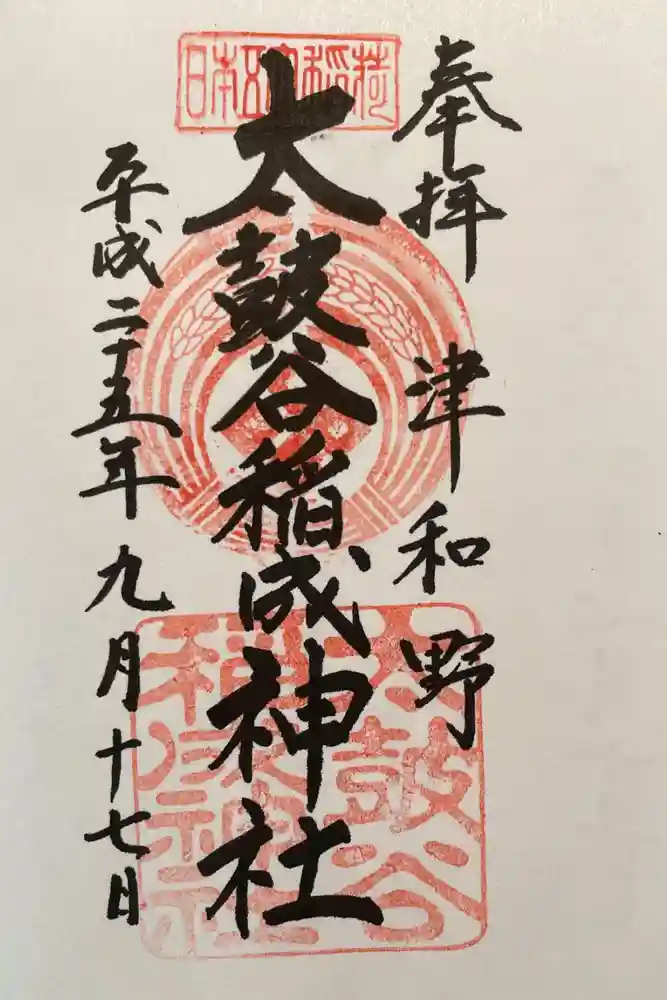 奉拝 津和野
日本五大稲荷
太鼓谷稲成神社
太鼓谷
稲成神社
平成二十五年九月十七日